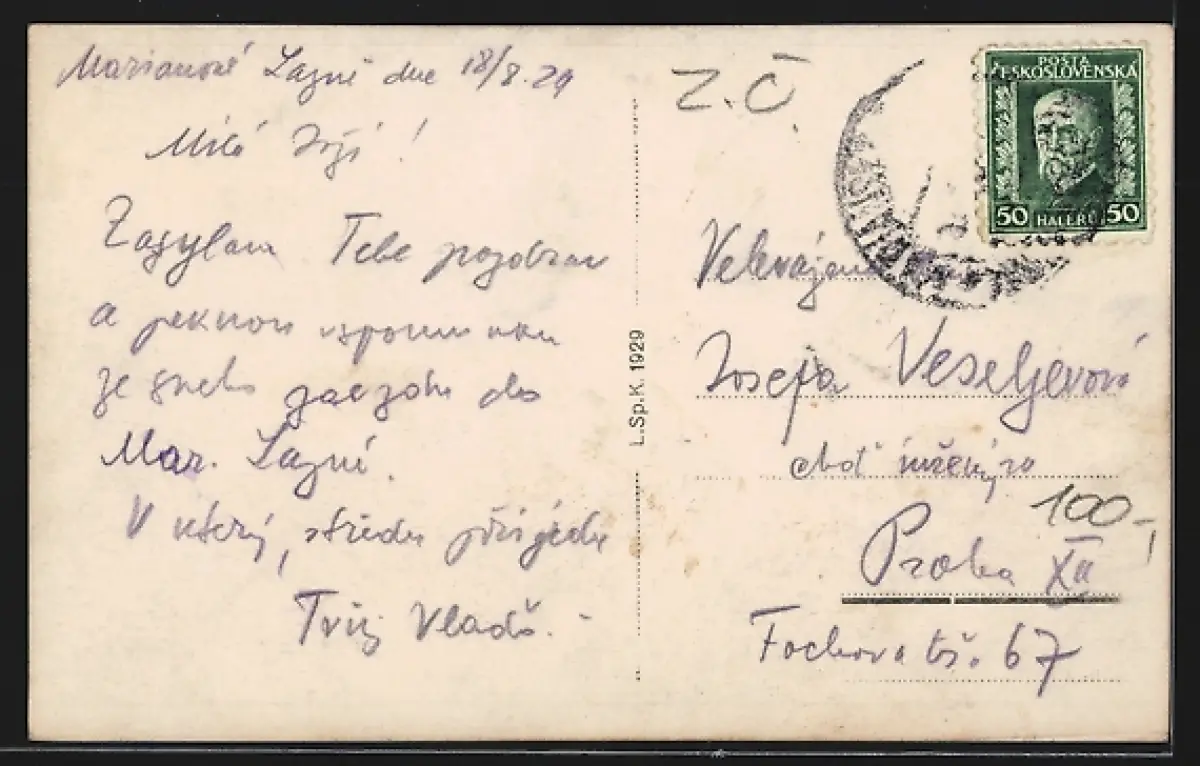 Marianské Lazně dne 18/8.29
Milá Joži!
Zasylam Tebe pozdrav
a peknou vzpomınku
ze sveho zaezdu do
Mar. Lazní.
V uterý, středu přijedu
Tvůj Vladš.
Z.Č.
POŠTA
ČESKOSLOVENSKÁ
50 HALÉŘŮ 50
Velevážená
Josefa Veselyová
choť inženýra
100,-
Praha XII
Fochova tř. 67
L.Sp.K. 1929